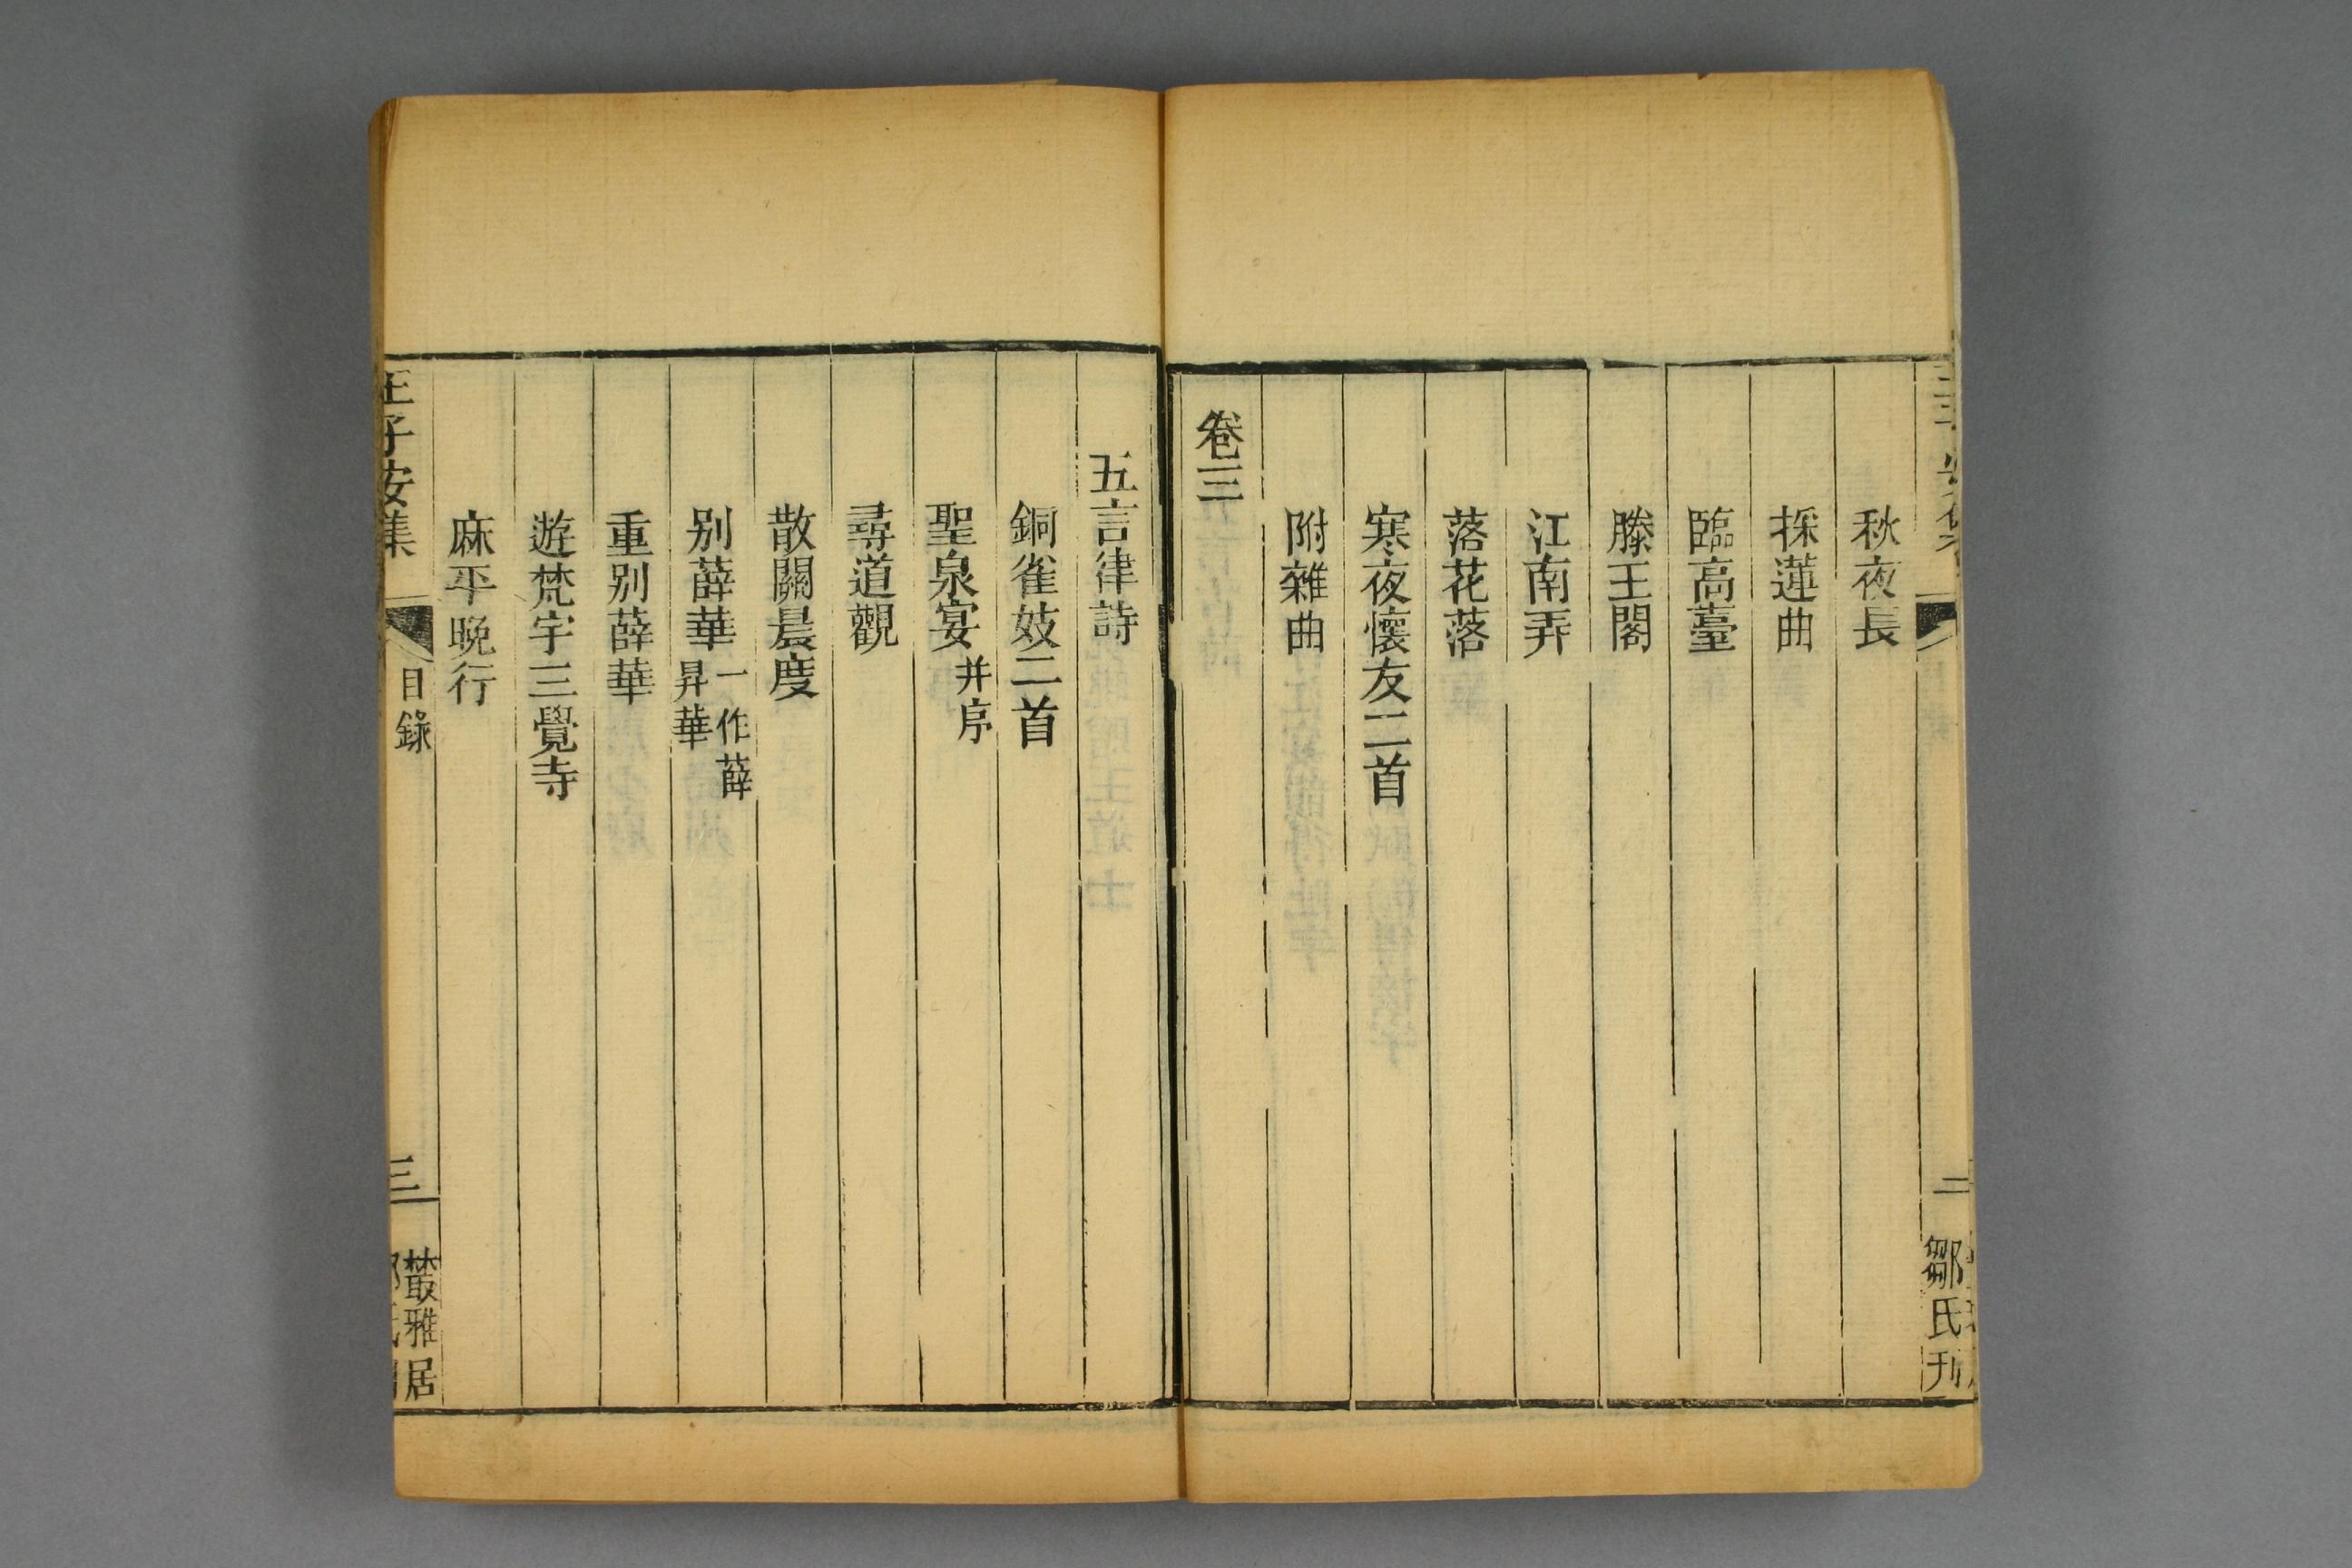 秋夜長
採蓮曲
臨高臺
滕王閣
江南弄
落花落
寒夜懷友二首
附雜曲
卷三
二
鄒氏刊
五言律詩
銅雀妓二首
聖泉宴并序
尋道觀
散關晨度
別薛華一作薛昇華
重別薛華
遊梵宇三覺寺
麻平晚行
王子安集
目錄
三
叢雅居